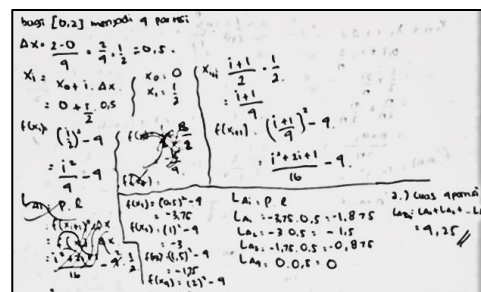 bagi [0,2] menjadi 4 partisi
Δx = 2-0/4 = 2/4 = 1/2 = 0,5.
xi = x0 + i. Δx
= 0 + i/2 0,5
x0 = 0
x1 = 1/2
f(xi) = (i/2)² - 4
= i²/4 - 4
i+1/2 . 1/2
= i+1/4
f(xi+1) = (i+1/4)² - 4.
= i²+2i+1/16 - 4.
LAi = p. l
f(x1) = (0,5)² - 4
= -3,75
f(x2) = (1)² - 4
= -3
f(x3) = (1,5)² - 4
= -1,75
f(x4) = (2)² - 4
LAi = p. l
LA1 = -3,75. 0,5 = -1,875
LA2 = -3 0,5 = -1,5
LA3 = -1,75. 0,5 = -0,875
LA4 = 0. 0,5 = 0
2.) Luas 4 partisi
= 4,25